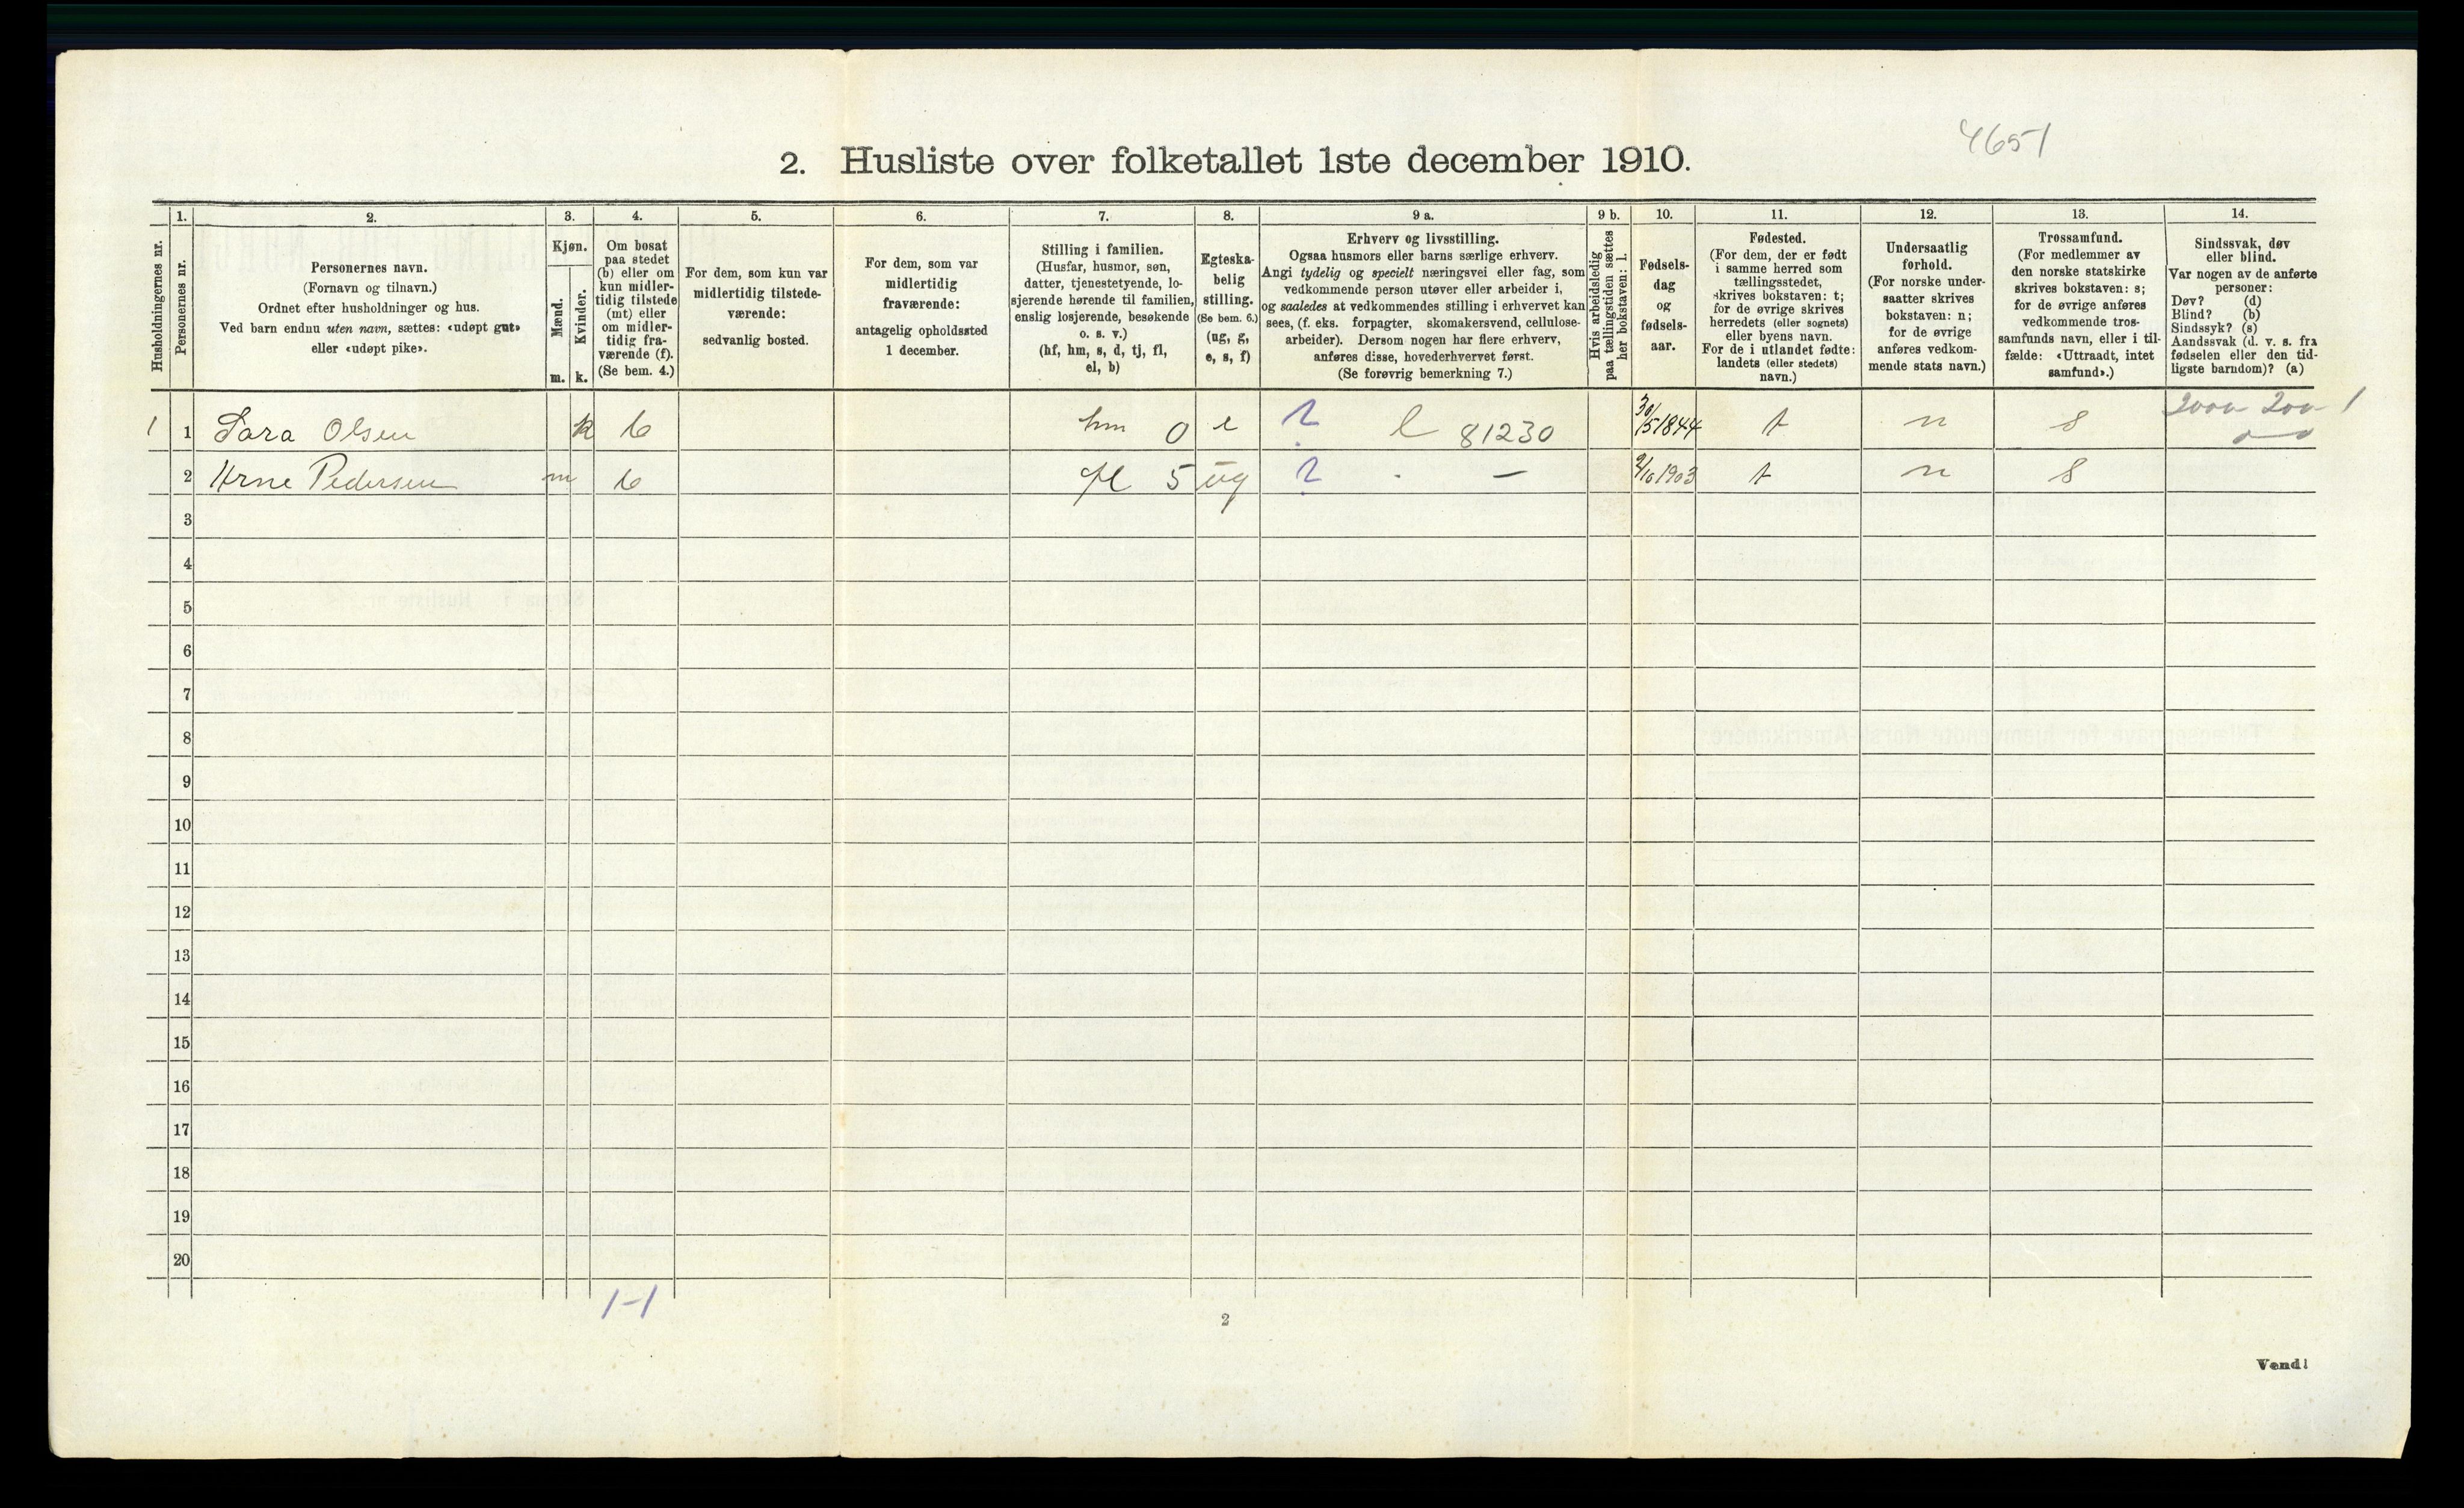 4651
2. Husliste over folketallet 1ste december 1910.
Husholdningernes nr.
1.
Personernes nr.
2.
Personernes navn.
(Fornavn og tilnavn.)
Ordnet efter husholdninger og hus.
Ved barn endnu uten navn, sættes: «udøpt gut»
eller «udøpt pike».
3.
Kjøn.
Mænd.
Kvinder.
m. k.
4.
Om bosat
paa stedet
(b) eller om
kun midler-
tidig tilstede
(mt) eller
om midler-
tidig fra-
værende (f).
(Se bem. 4.)
5.
For dem, som kun var
midlertidig tilstede-
værende:
sedvanlig bosted.
6.
For dem, som var
midlertidig
fraværende:
antagelig opholdssted
1 december.
7.
Stilling i familien.
(Husfar, husmor, søn,
datter, tjenestetyende, lo-
sjerende hørende til familien,
enslig losjerende, besøkende
o. s. v.)
(hf, hm, s, d, tj, fl,
el, b)
8.
Egteska-
belig
stilling.
(Se bem. 6.)
(ug, g,
e, s, f)
9 a.
Erhverv og livsstilling.
Ogsaa husmors eller barns særlige erhverv.
Angi tydelig og specielt næringsvei eller fag, som
vedkommende person utøver eller arbeider i,
og saaledes at vedkommendes stilling i erhvervet kan
sees, (f. eks. forpagter, skomakersvend, cellulose-
arbeider). Dersom nogen har flere erhverv,
anføres disse, hovederhvervet først.
(Se forøvrig bemerkning 7.)
9 b.
Hvis arbeidsledig
paa tællingstiden sættes
her bokstaven: l.
10.
Fødsels-
dag
og
fødsels-
aar.
11.
Fødested.
(For dem, der er født
i samme herred som
tællingsstedet,
skrives bokstaven: t;
for de øvrige skrives
herredets (eller sognets)
eller byens navn.
For de i utlandet fødte:
landets (eller stedets)
navn.)
12.
Undersaatlig
forhold.
(For norske under-
saatter skrives
bokstaven: n;
for de øvrige
anføres vedkom-
mende stats navn.)
13.
Trossamfund.
(For medlemmer av
den norske statskirke
skrives bokstaven: s;
for de øvrige anføres
vedkommende tros-
samfunds navn, eller i til-
fælde: «Uttraadt, intet
samfund».)
14.
Sindssvak, døv
eller blind.
Var nogen av de anførte
personer:
Døv? (d)
Blind? (b)
Sindssyk? (s)
Aandssvak (d. v. s. fra
fødselen eller den tid-
ligste barndom)? (a)
1 1 Sara Olsen k b hm 0 e ? l 81230 30/5 1844 t n s
2 Arne Pedersen m b fl 5 ug ? - — 9/10 1903 t n s
3
4
5
6
7
8
9
10
11
12
13
14
15
16
17
18
19
20
1-1
2
Vend!